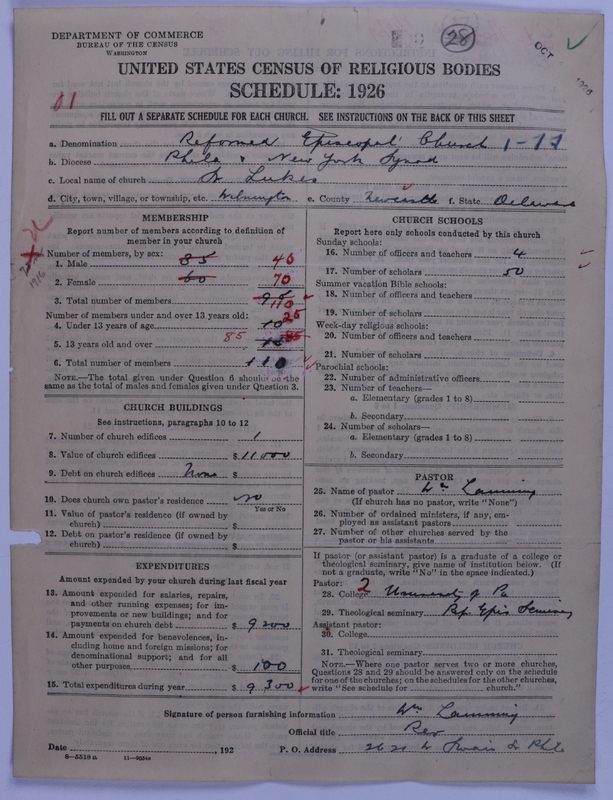 DEPARTMENT OF COMMERCE
BUREAU OF THE CENSUS
WASHINGTON
28
OCT
UNITED STATES CENSUS OF RELIGIOUS BODIES
SCHEDULE: 1926
01
FILL OUT A SEPARATE SCHEDULE FOR EACH CHURCH. SEE INSTRUCTIONS ON THE BACK OF THIS SHEET
a. Denomination Reformed Episcopal Church 1-77
b. Diocese Phila & New York Synod
c. Local name of church St Lukes
d. City, town, village, or township, etc. Wilmington e. County Newcastle f. State Delaware
MEMBERSHIP
Report number of members according to definition of
member in your church
Number of members, by sex:
1. Male 35 40
2. Female 60 70
1916
3. Total number of members 95 110
Number of members under and over 13 years old:
4. Under 13 years of age 10 25
5. 13 years old and over 85 85
6. Total number of members 110
NOTE.—The total given under Question 6 should be the
same as the total of males and females given under Question 3.
CHURCH BUILDINGS
See instructions, paragraphs 10 to 12
7. Number of church edifices 1
8. Value of church edifices $ 11000
9. Debt on church edifices None $
10. Does church own pastor's residence no
Yes or No
11. Value of pastor's residence (if owned by
church) $
12. Debt on pastor's residence (if owned by
church) $
EXPENDITURES
Amount expended by your church during last fiscal year
13. Amount expended for salaries, repairs,
and other running expenses; for im-
provements or new buildings; and for
payments on church debt $ 9200
14. Amount expended for benevolences, in-
cluding home and foreign missions; for
denominational support; and for all
other purposes $ 100
15. Total expenditures during year $ 9300
CHURCH SCHOOLS
Report here only schools conducted by this church
Sunday schools:
16. Number of officers and teachers 4
17. Number of scholars 50
Summer vacation Bible schools:
18. Number of officers and teachers
19. Number of scholars
Week-day religious schools:
20. Number of officers and teachers
21. Number of scholars
Parochial schools:
22. Number of administrative officers
23. Number of teachers—
a. Elementary (grades 1 to 8)
b. Secondary
24. Number of scholars—
a. Elementary (grades 1 to 8)
b. Secondary
PASTOR
25. Name of pastor Wm Lamming
(If church has no pastor, write "None")
26. Number of ordained ministers, if any, em-
ployed as assistant pastors
27. Number of other churches served by the
pastor or his assistants
If pastor (or assistant pastor) is a graduate of a college or
theological seminary, give name of institution below. (If
not a graduate, write "No" in the space indicated.)
Pastor: 2
28. College University of Pa
29. Theological seminary Ref. Epis Seminary
Assistant pastor:
30. College
31. Theological seminary
NOTE.—Where one pastor serves two or more churches,
Questions 28 and 29 should be answered only on the schedule
for one of the churches; on the schedules for the other churches,
write "See schedule for church."
Signature of person furnishing information Wm Lamming
Official title Rev
Date , 192 P. O. Address Swain St Phila
8—5518 a